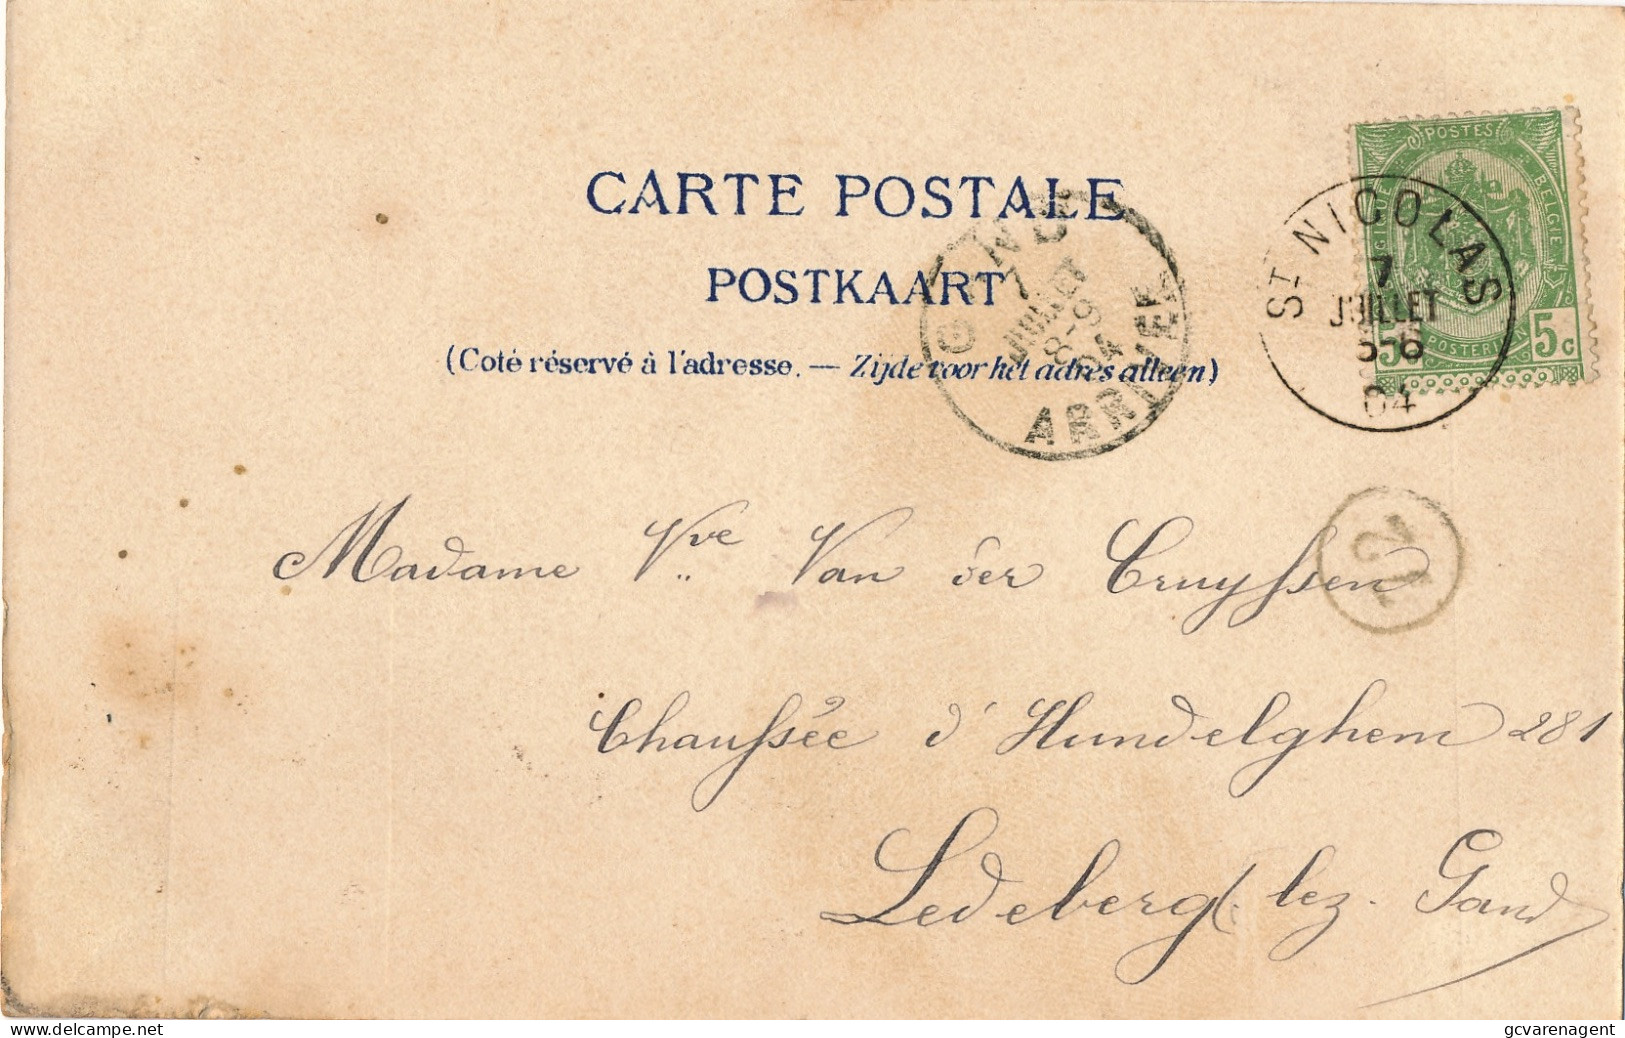 CARTE POSTALE
POSTKAART
(Coté réservé à l'adresse. — Zijde voor het adres alleen)
POSTES
BELGIQUE
BELGIE
POSTERIJEN
5
5c
ST NICOLAS
7
JUILLET
5-6
04
GAND
7
JUILLET
8-9
04
ARRIVEE
Madame Vve Van der Cruyssen
Chaussée d'Hundelghem 281
Ledeberg (lez-Gand
delcampe.net
gcvarenagent